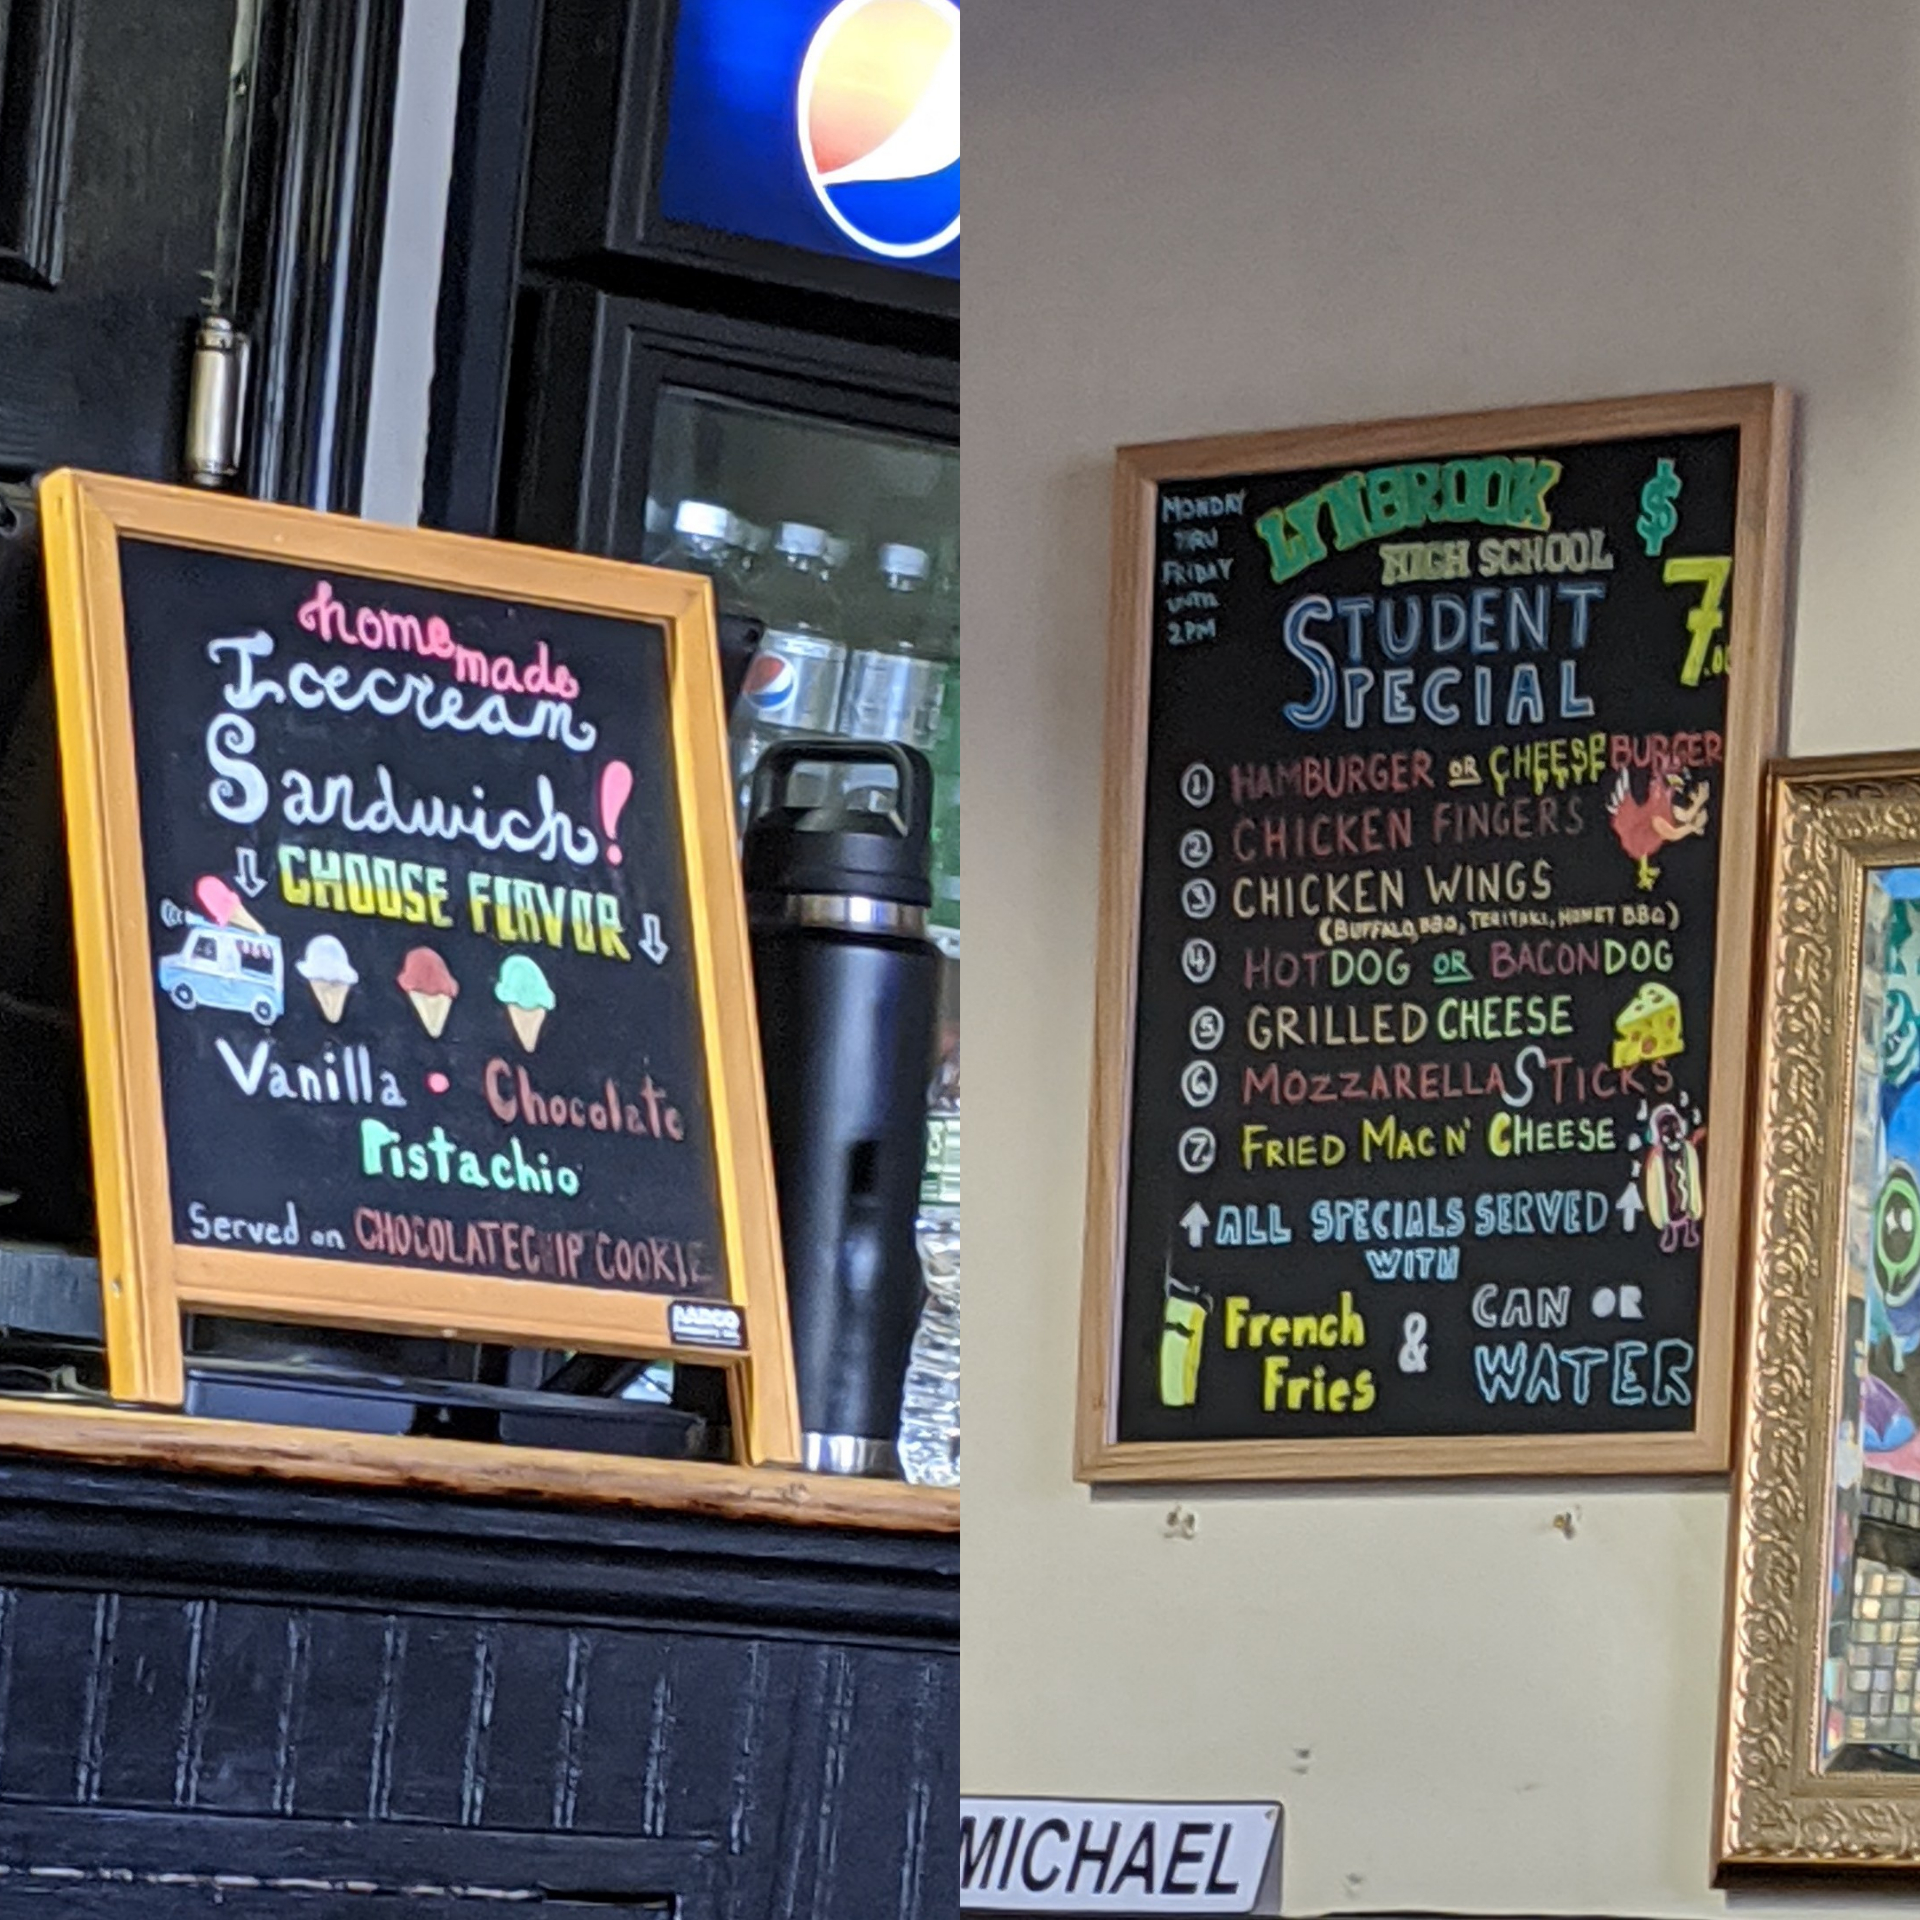 homemade
Icecream
Sandwich!
CHOOSE FLAVOR
Vanilla • Chocolate
Pistachio
Served on CHOCOLATECHIP COOKIE
AARCO
MONDAY
THRU
FRIDAY
UNTIL
2PM
LYNBROOK
HIGH SCHOOL
STUDENT
SPECIAL
$
7.00
1 HAMBURGER OR CHEESEBURGER
2 CHICKEN FINGERS
3 CHICKEN WINGS
(BUFFALO, BBQ, TERIYAKI, HONEY BBQ)
4 HOTDOG OR BACONDOG
5 GRILLED CHEESE
6 MOZZARELLA STICKS
7 FRIED MAC N' CHEESE
↑ ALL SPECIALS SERVED ↑
WITH
French
Fries
&
CAN OR
WATER
MICHAEL